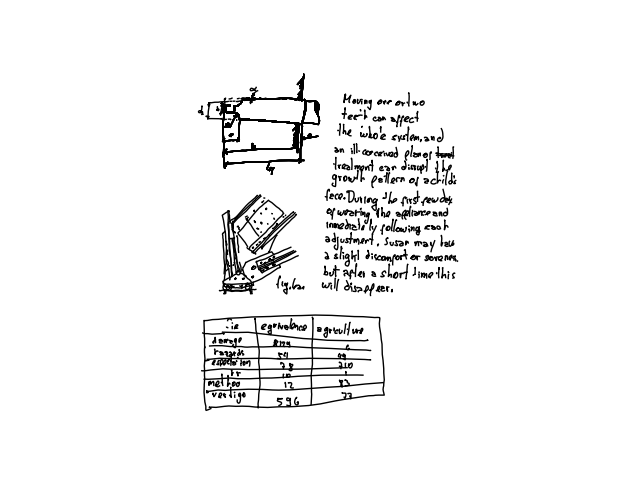 Moving one or two
teeth can affect
the whole system, and
an ill-conceived plan of
treatment can disrupt the
growth pattern of a child's
face. During the first few days
of wearing the appliance and
immediately following each
adjustment, Susan may have
a slight discomfort or soreness
but after a short time this
will disappear.
fig.6a
equivalence agriculture
damage
hazards 54
28 210
10
method 12 83
vertigo 596